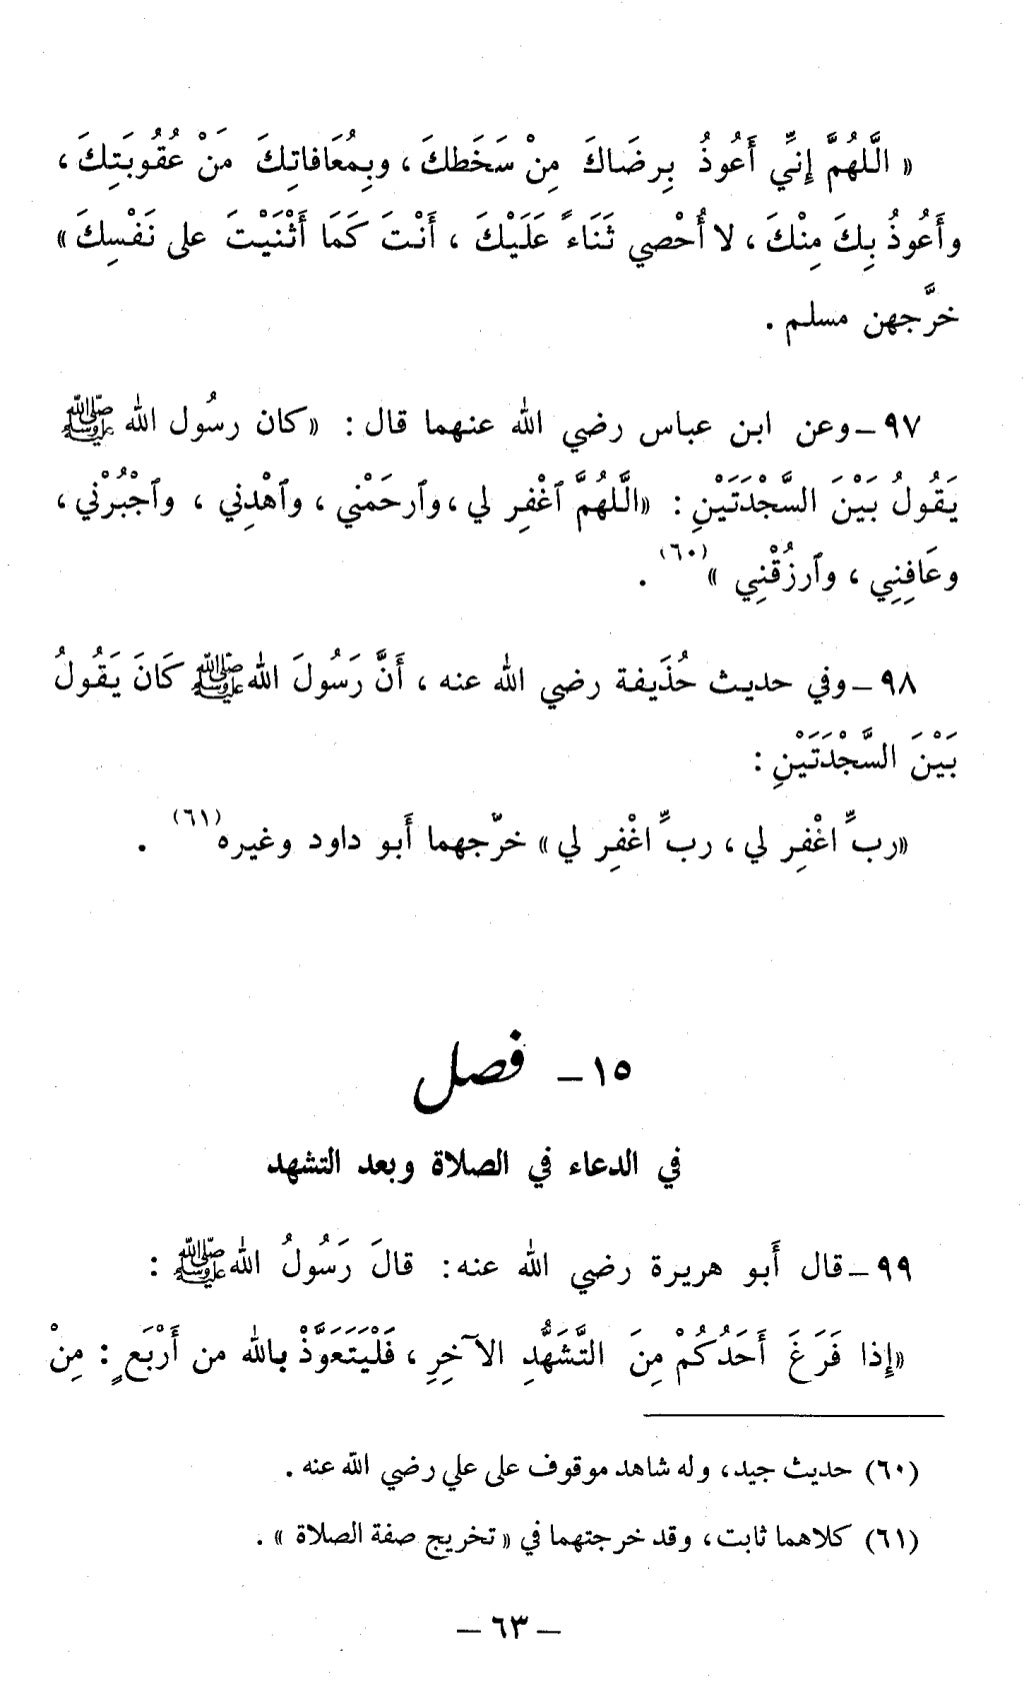 « الَّلهُمَّ إِنيِّ أَعُوذُ بِرِضَاكَ مِنْ سَخَطكَ ، وبِمُعَافاتِكَ مَنْ عُقُوبَتِكَ ،
وأَعُوذُ بِكَ مِنْكَ ، لا أُحْصي ثَنَاءً عَلَيْكَ ، أَنْتَ كَمَا أَثْنَيْتَ على نَفْسِكَ »
خرَّجهن مسلم .
٩٧ – وعن ابن عباس رضي الله عنهما قال : « كان رسُول الله ﷺ
يَقُولُ بَيْنَ السَّجْدَتَيْنِ : « الَّلهُمَّ ٱغْفِر لي ، وٱرحَمْني ، وٱهْدِني ، وٱجْبُرْني ،
وعَافِنِي ، وٱرزُقْنِي » (٦٠) .
٩٨ – وفي حديث حُذَيفة رضي الله عنه ، أَنَّ رَسُولَ الله ﷺ كَانَ يَقُولُ
بَيْنَ السَّجْدَتَيْنِ :
« ربِّ اغْفِر لي ، ربِّ اغْفِر لي » خرّجهما أَبو داود وغيره (٦١) .
١٥ – فصل
في الدعاء في الصلاة وبعد التشهد
٩٩ – قال أَبو هريرة رضي الله عنه : قالَ رَسُولُ الله ﷺ :
« إِذا فَرَغَ أَحَدُكُمْ مِنَ التَّشَهُّدِ الآخِرِ ، فَلْيَتَعَوَّذْ بالله من أَرْبَعٍ : مِنْ
(٦٠) حديث جيد ، وله شاهد موقوف على علي رضي الله عنه .
(٦١) كلاهما ثابت ، وقد خرجتهما في « تخريج صفة الصلاة » .
– ٦٣ –